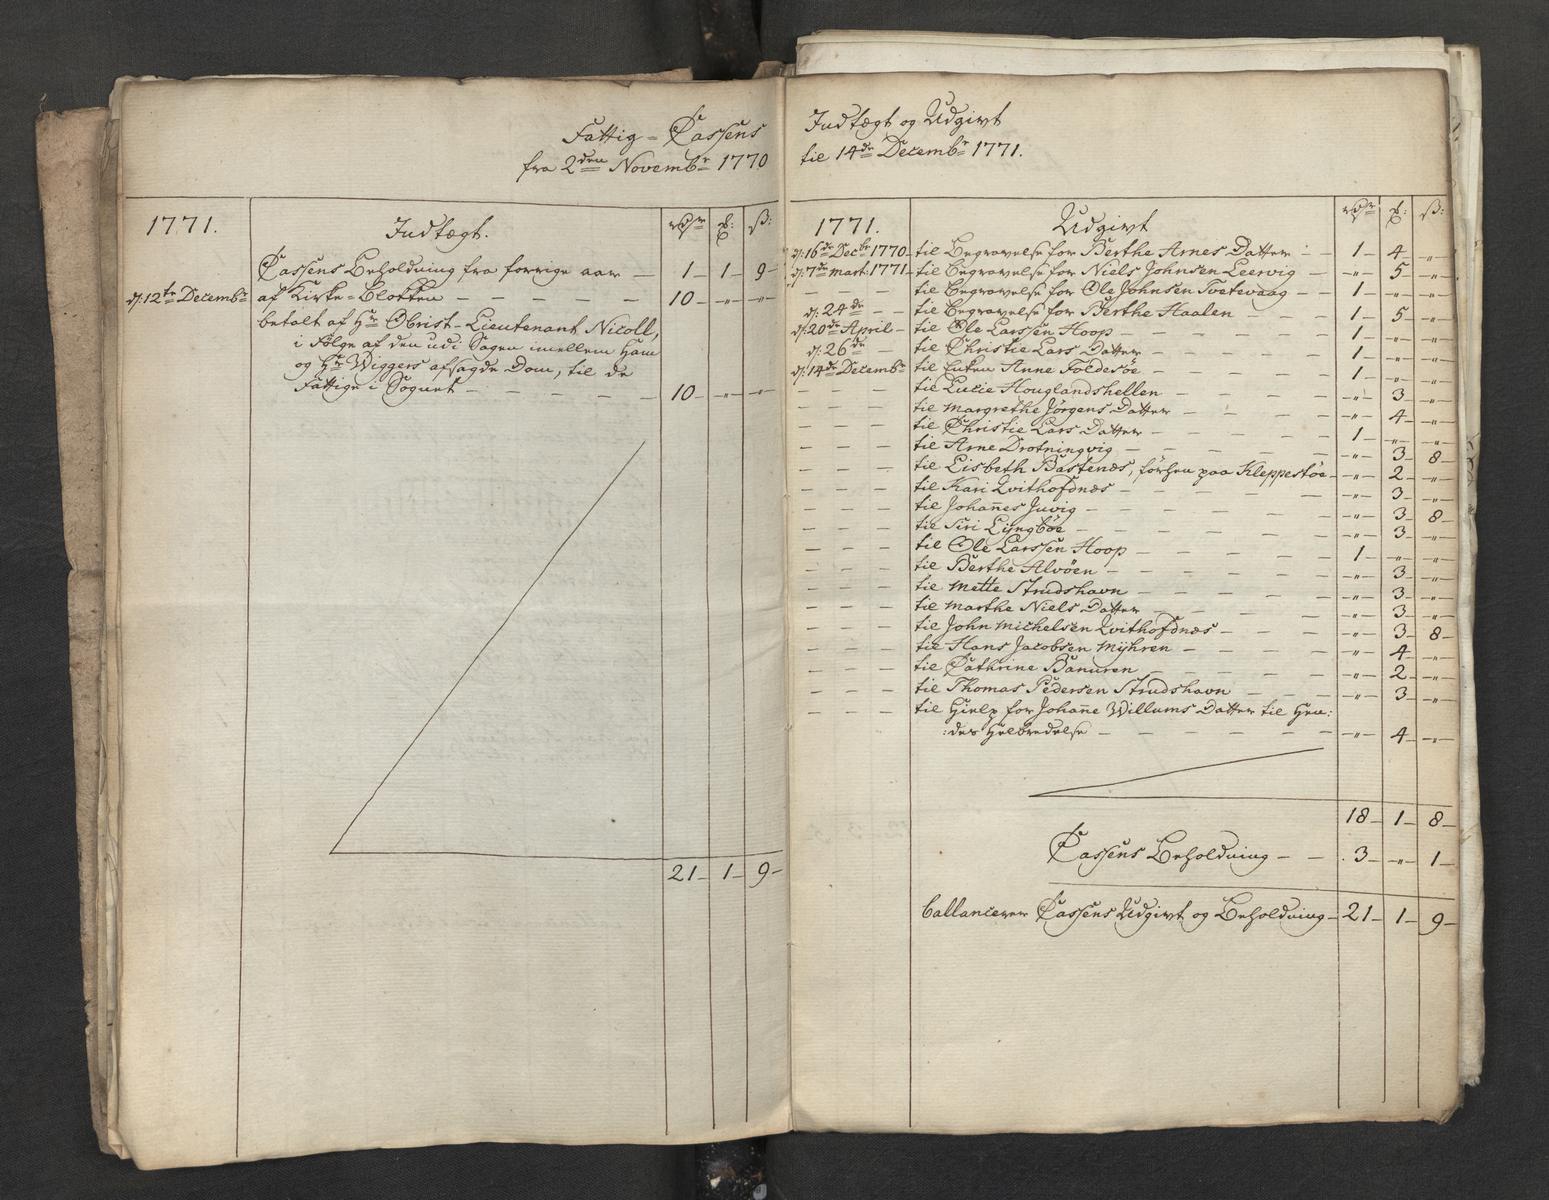 Fattig-Cassens
fra 2den Novembr 1770
1771. Indtægt. rdr ß:
Cassens Beholdning fra forrige aar — 1 – 1 – 9 –
d: 12te Decembr af Kirke-Blokken — — — — — 10 – „ – „ –
betalt af Hr Obrist-Lieutenant Nicoll,
i Følge af den udi Sagen imellem Ham
og Hr Wiggers afsagde Dom, til de
Fattige i Sognet — — — — — 10 – „ – „ –
21 – 1 – 9 –
Indtægt og Udgivt
til 14de Decembr 1771.
1771. Udgivt rdr ß:
d: 16de Decbr 1770 – til Begravelse for Berthe Arnes Datter – – 1 – 4 – „ –
d: 7de mart: 1771 – til Begravelse for Niels Johnsen Leervig – – „ – 5 – „ –
— — — til Begravelse for Ole Johnsen Tvetevaag – – 1 – „ – „ –
d: 24de – til Begravelse for Berthe Haalen – – 1 – 5 – „ –
d: 20de April – til Ole Larssen Hoop — — — — — 1 – „ – „ –
d: 26de – til Christie Lars Datter — — — — 1 – „ – „ –
d: 14de Decembr til Enken Anne Foldesøe — — — — 1 – „ – „ –
— — — til Lucie Houglandshellen — — — — „ – 3 – „ –
— — — til Margrethe Jørgens Datter — — — — „ – 4 – „ –
— — — til Christie Lars Datter — — — — 1 – „ – „ –
— — — til Arne Drotningvig — — — — „ – 3 – 8 –
— — — til Lisbeth Bastenæs, førhen paa Kleppestøe – „ – 2 – „ –
— — — til Kari Qvithofdnæs — — — — „ – 3 – „ –
— — — til Johañes Juvig — — — — „ – 3 – 8 –
— — — til Siri Lyngbøe — — — — „ – 3 – „ –
— — — til Ole Larssen Hoop — — — — 1 – „ – „ –
— — — til Berthe Alvøen — — — — „ – 3 – „ –
— — — til Mette Strudshavn — — — — „ – 3 – „ –
— — — til Marthe Niels Datter — — — — „ – 3 – „ –
— — — til John Michelsen Qvithofdnæs — — — „ – 3 – 8 –
— — — til Hans Jacobsen Myhren — — — — „ – 4 – „ –
— — — til Cathrine Banuren — — — — „ – 2 – „ –
— — — til Thomas Pedersen Strudshavn — — — „ – 3 – „ –
— — — til Hielp for Johañe Willums Datter til Hen:
:des Helbredelse — — — — — „ – 4 – „ –
18 – 1 – 8 –
Cassens Beholdning — — 3 – „ – 1 –
Ballancerer Cassens Udgivt og Beholdning – 21 – 1 – 9 –